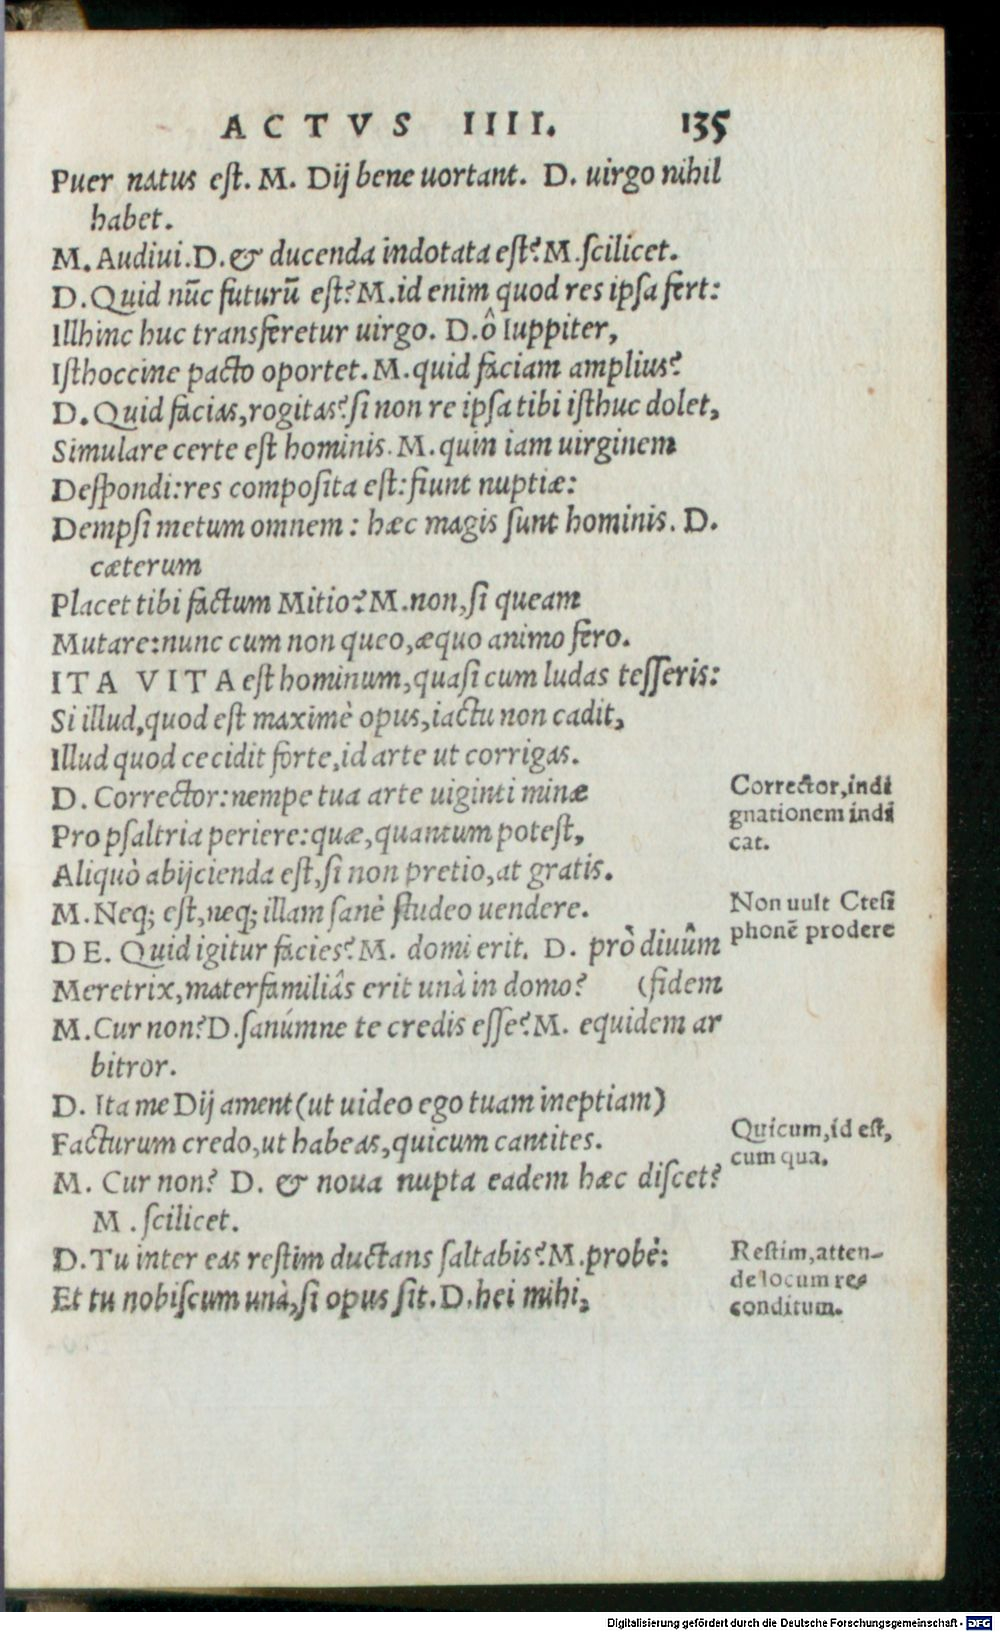 ACTVS IIII. 135
Puer natus eſt. M. Dij bene uortant. D. uirgo nihil
habet.
M. Audiui. D. & ducenda indotata eſt? M. ſcilicet.
D. Quid nūc futurū eſt? M. id enim quod res ipſa fert:
Illhinc huc transferetur uirgo. D. ô Iuppiter,
Iſthoccine pacto oportet. M. quid faciam amplius?
D. Quid facias, rogitas? ſi non re ipſa tibi iſthuc dolet,
Simulare certe eſt hominis. M. quin iam uirginem
Deſpondi: res compoſita eſt: fiunt nuptiæ:
Dempſi metum omnem: hæc magis ſunt hominis. D.
cæterum
Placet tibi factum Mitio? M. non, ſi queam
Mutare: nunc cum non queo, æquo animo fero.
ITA VITA eſt hominum, quaſi cum ludas teſſeris:
Si illud, quod eſt maximè opus, iactu non cadit,
Illud quod cecidit forte, id arte ut corrigas.
D. Corrector: nempe tua arte uiginti minæ
Pro pſaltria periere: quæ, quantum poteſt,
Aliquò abijcienda eſt, ſi non pretio, at gratis.
M. Neq; eſt, neq; illam ſanè ſtudeo uendere.
DE. Quid igitur facies? M. domi erit. D. prò diuûm
Meretrix, materfamiliâs erit unà in domo? (fidem
M. Cur non? D. ſanúmne te credis eſſe? M. equidem ar
bitror.
D. Ita me Dij ament (ut uideo ego tuam ineptiam)
Facturum credo, ut habeas, quicum cantites.
M. Cur non? D. & noua nupta eadem hæc diſcet?
M. ſcilicet.
D. Tu inter eas reſtim ductans ſaltabis? M. probè:
Et tu nobiſcum unà, ſi opus ſit. D. hei mihi,
Corrector, indi
gnationem indi
cat.
Non uult Cteſi
phonē prodere
Quicum, id eſt,
cum qua.
Reſtim, atten-
de locum re-
conditum.
Digitalisierung gefördert durch die Deutsche Forschungsgemeinschaft - DFG